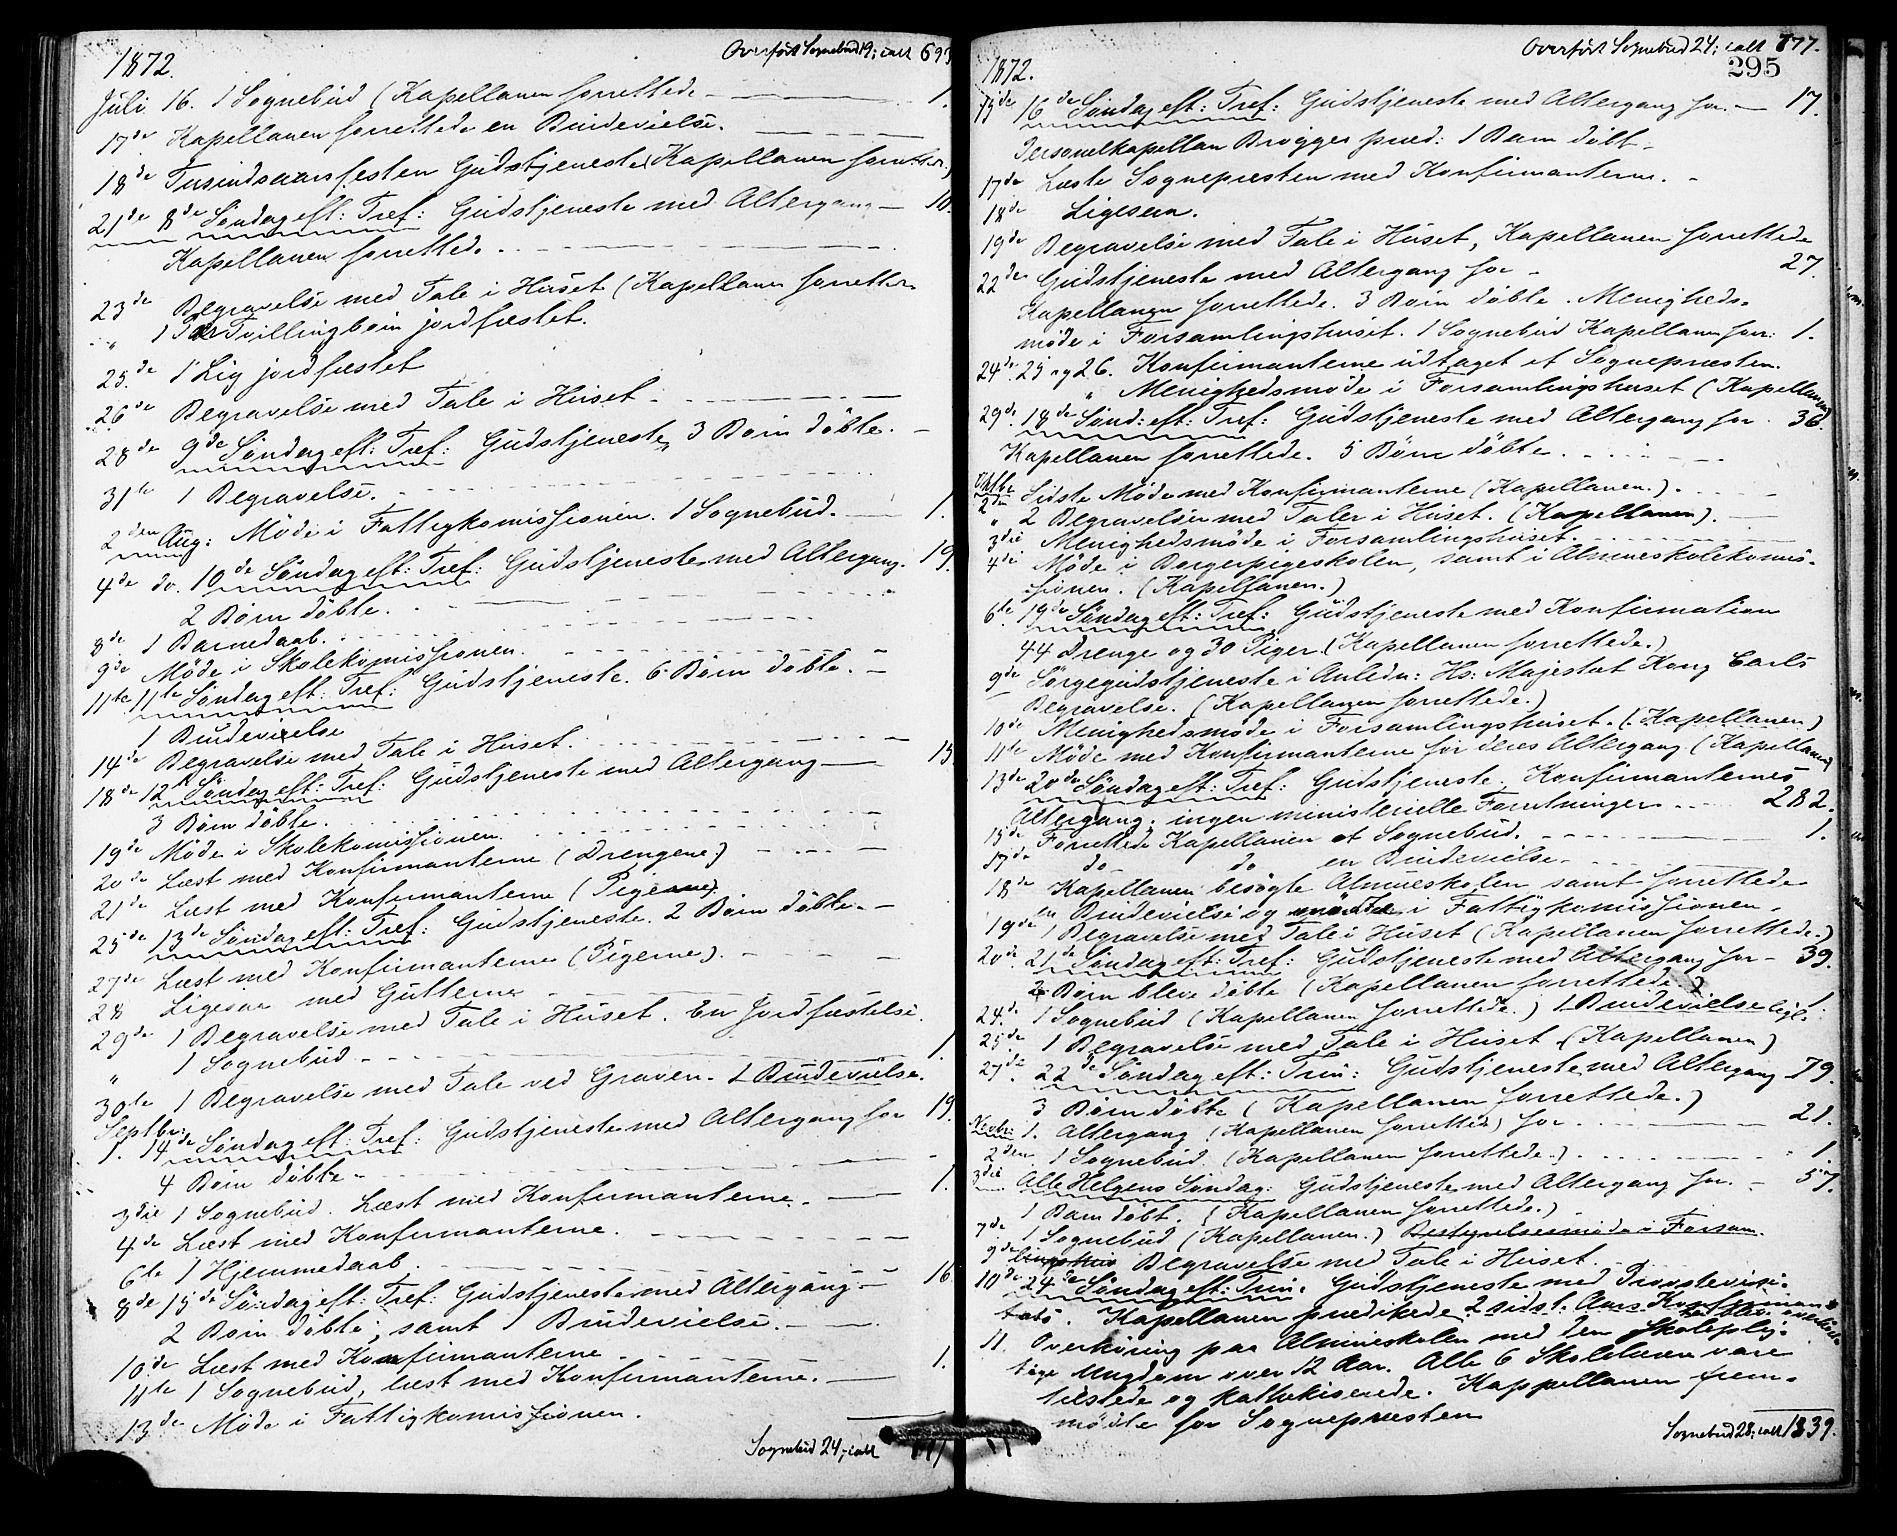 1872.
Overført Sognebud 19; ialt 693
Juli 16. 1 Sognebud (Kapellanen forrettede - 1.
17de Kapellanen forrettede en Brudevielse.
18de Tusindsaarsfesten Gudstjeneste (Kapellanen forretter)
21de 8de Søndag eft: Tref: Gudstjeneste med Altergang - 10.
Kapellanen forretted.
23de Begravelse med Tale i Huset (Kapellanen forretter
" 1 Par Tvillingbørn jordfæstet.
25.de 1 Lig jordfæstet
26de Begravelse med Tale i Huset -
28de 9de Søndag eft: Tref: Gudstjeneste, 3 Børn døbte. -
31te 1 Begravelse.
2den Aug: Møde i Fattigkomissionen. 1 Sognebud. - 1.
4de do. 10de Søndag eft: Tref: Gudstjeneste med Altergang. 19.
2 Børn døbte.
8de 1 Barnedaab.
9de Møde i Skolekomissionen.
11te 11te Søndag eft: Tref: Gudstjeneste. 6 Børn døbte. -
1 Brudevielse
14de Begravelse med Tale i Huset.
18de 12te Søndag eft: Tref: Gudstjeneste med Altergang - 15.
3 Børn døbte.
19de Møde i Skolekomissionen.
20de Læst med Konfirmanterne (Drengene)
21de Læst med Konfirmanterne (Pigerne)
25de 13de Søndag eft: Tref: Gudstjeneste. 2 Børn døbte. -
27de Læst med Konfirmanterne (Pigerne).
28 Ligesaa med Gutterne
29de 1 Begravelse med Tale i Huset. En Jordfæstelse.
" 1 Sognebud - 1.
30te 1 Begravelse med Tale ved Graven. 1 Brudevielse.
Septbr:
1. 14de Søndag eft: Tref: Gudstjeneste med Altergang for 19.
4 Børn døbte -
3die 1 Sognebud. Læst med Konfirmanterne. - 1.
4de Læst med Konfirmanterne.
6te 1 Hjemmedaab.
8de 15de Søndag eft: Tref: Gudstjeneste med Altergang - 16.
2 Børn døbte, samt 1 Brudevielse.
10de Læst med Konfirmanterne
11te 1 Sognebud, læst med Konfirmanterne. - 1.
13de Møde i Fattigkomissionen.
Sognebud 24; ialt
Overført Sognebud 24; ialt 777.
295
1872.
15de 16de Søndag eft: Tref: Gudstjeneste med Altergang for. - 17.
Personelkapellan Brøgger præd: 1 Barn døbt -
17de Læste Sognepræsten med Konfirmanterne. -
18de Ligesaa.
19de Begravelse med Tale i Huset, Kapellanen forrettede
22de Gudstjeneste med Altergang for - 27.
Kapellanen forrettede. 3 Børn døbte. Menigheds-
møde i Forsamlingshuset. 1 Sognebud Kapellanen forr: 1.
24de 25 og 26. Konfirmanterne udtaget af Sognepræsten.
" Menighedsmøde i Forsamlingshuset (Kapellanen)
29de 18de Sønd: eft: Tref: Gudstjeneste med Altergang for. 36.
Kapellanen forrettede. 5 Børn døbte.
Oktbr.
2den Sidste Møde med Konfirmanterne (Kapellanen.).
" 2 Begravelser med Taler i Huset. (Kapellanen).
3die Menighedsmøde i Forsamlingshuset.
4de Møde i Borgerpigeskolen, samt i Almueskolekomis-
sionen. (Kapellanen.)
6te. 19de Søndag eft: Tref: Gudstjeneste med Konfirmation
44 Drenge og 30 Piger. (Kapellanen forrettede.)
9de Sørgegudstjeneste i Anledn: Hs: Majestæt Kong Carls
Begravelse. (Kapellanen forrettede.)
10de Menighedsmøde i Forsamlingshuset. (Kapellanen)
11te Møde med Konfirmanterne før deres Altergang (Kapellanen)
13de 20de Søndag eft: Tref: Gudstjeneste. Konfirmanternes
Altergang, ingen ministerielle Forretninger. 282.
15de Forrettede Kapellanen et Sognebud. 1.
17de do do en Brudevielse.
18de Kapellanen besøgte Almueskolen samt forrettede
en Brudevielse og mødte i Fattigkomissionen.
19de 1 Begravelse med Tale i Huset (Kapellanen forrettede.)
20de. 21de Søndag eft: Tref: Gudstjeneste med Altergang for - 39.
2 Børn bleve døbte (Kapellanen forrettede.)
24de. 1 Sognebud (Kapellanen forrettede.) 1 Brudevielse ligl. 1.
25de 1 Begravelse med Tale i Huset (Kapellanen)
27de 22de Søndag eft: Trin: Gudstjeneste med Altergang 79.
3 Børn døbte (Kapellanen forrettede.)
Novbr: 1. Altergang (Kapellanen forrettede) for 21.
2den 1 Sognebud (Kapellanen forrettede.) 1
3die Alle Helgens Søndag: Gudstjeneste med Altergang for. - 57.
1 Barn døbt. (Kapellanen forrettede.)
7de 1 Sognebud (Kapellanen.) Bestyrelsesmøde i Forsam-
9de lingshus Begravelse med Tale i Huset.
10de 24de Søndag eft: Trin: Gudstjeneste med Provstevisi-
tats. Kapellanen prædikede 2 sidst: Aars Konfirman-
11. Overhøring paa Almueskolen med den skoleplig-
tige Ungdom over 12 Aar. Alle 6 Skolelærere vare
tilstede og kathekiserede. Kappellanen frem-
mødte for Sognepræsten
Sognebud 28; ialt 1339.